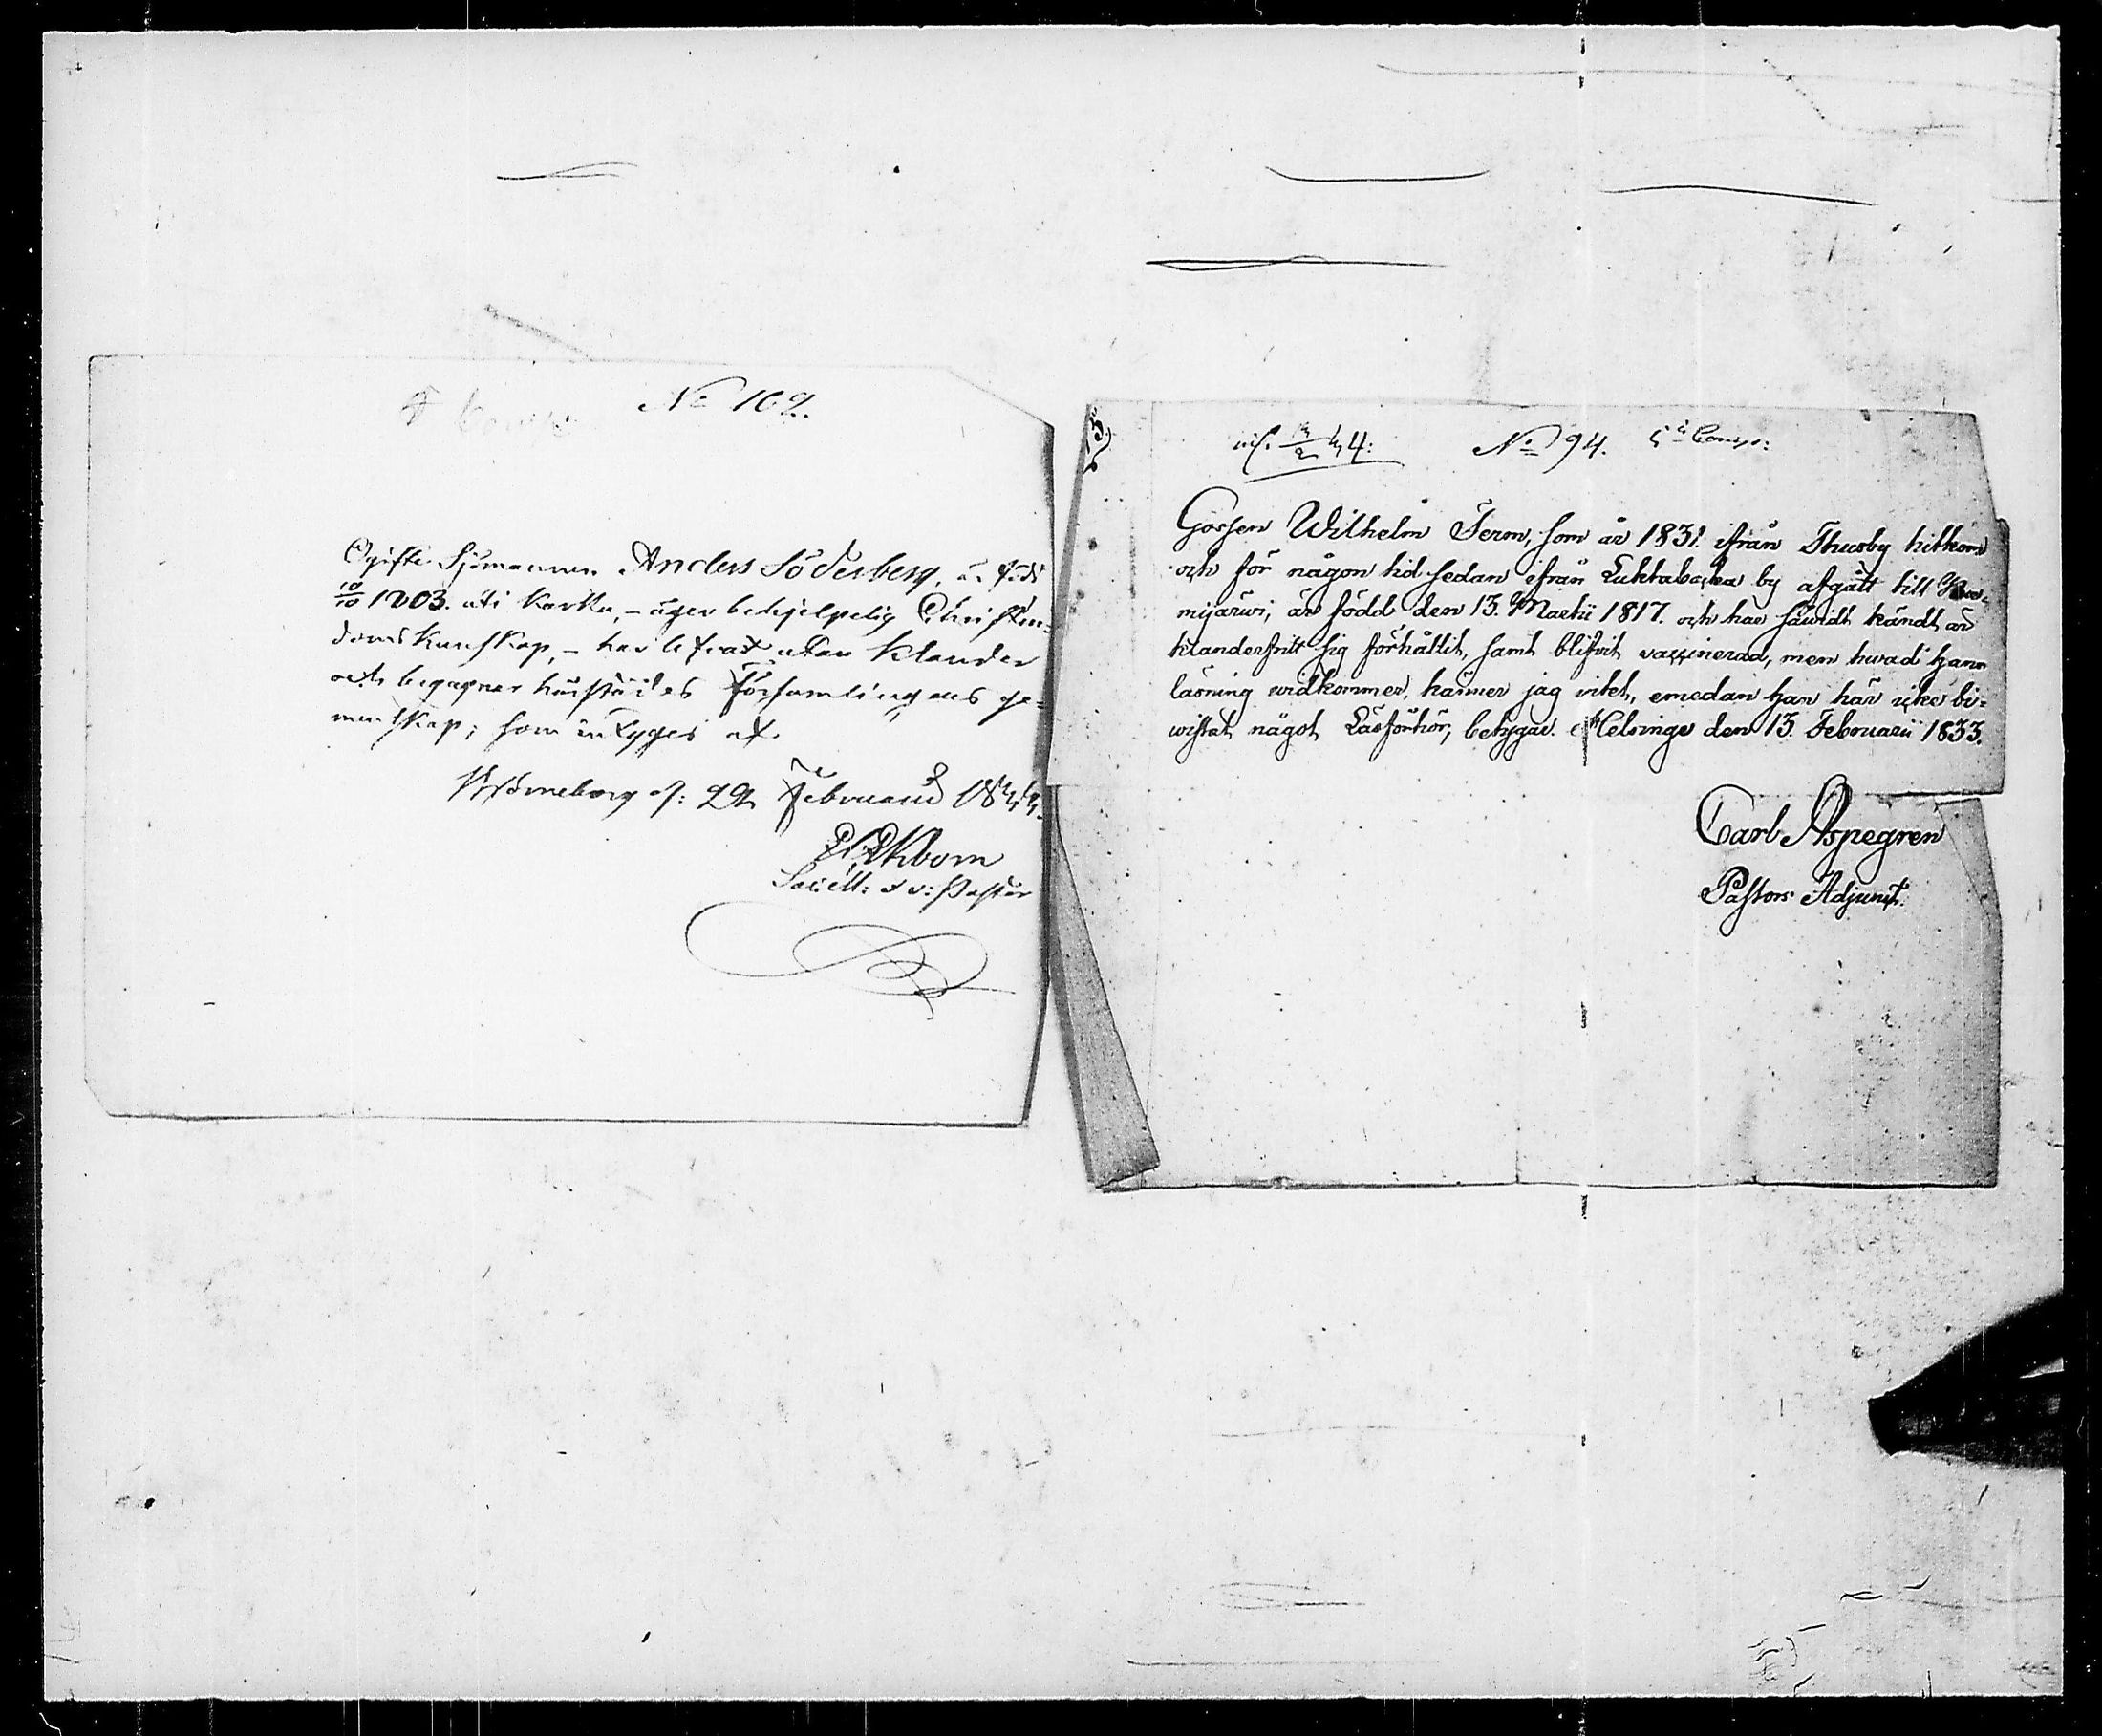 No 102.
Ogifte Sjömannen Anders Söderberg, är född
10/10 1803. uti Karkku, – äger behjelpelig Christen-
doms Kunskap, – har lefvat utan klander
och begagnar härstädes församlingens ge-
menskap; som intyges af.
Björneborg d: 22 Februarii 1844.
Ekbom
Sacell: v: Pastor
No 94. 5te Comp:
Gossen Wilhelm Ferm, som år 1831. ifrån Thusby hitkom
och för någon tid sedan ifrån Luktabacka by afgått till
mijärwi, är född den 13. Martii 1817. och har såvidt kändt är
klanderfritt sig förhållit, samt blifvit vaccinerad, men hwad hans
läsning widkommer, känner jag intet, emedan han här icke bi-
wistat något Läsförhör; betygar. Helsinge den 13. Februarii 1833.
Carl Aspegren
Pastors Adjunct.